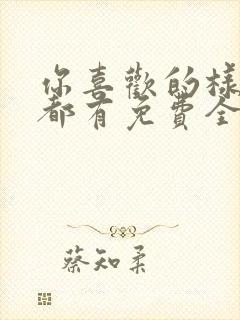 你喜歡的樣
都有免費全
蔡知柔